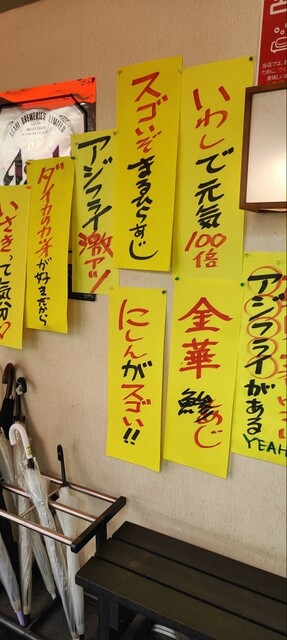 いわしで元気100倍
スゴいぞまるひらあじ
アジフライ激アツ
ダイカのカオが好きだから
いさきって気分♡
アジフライがある
YEAH
金華鯵あじ
にしんがスゴい!!
ASAHI BREWERIES LIMITED